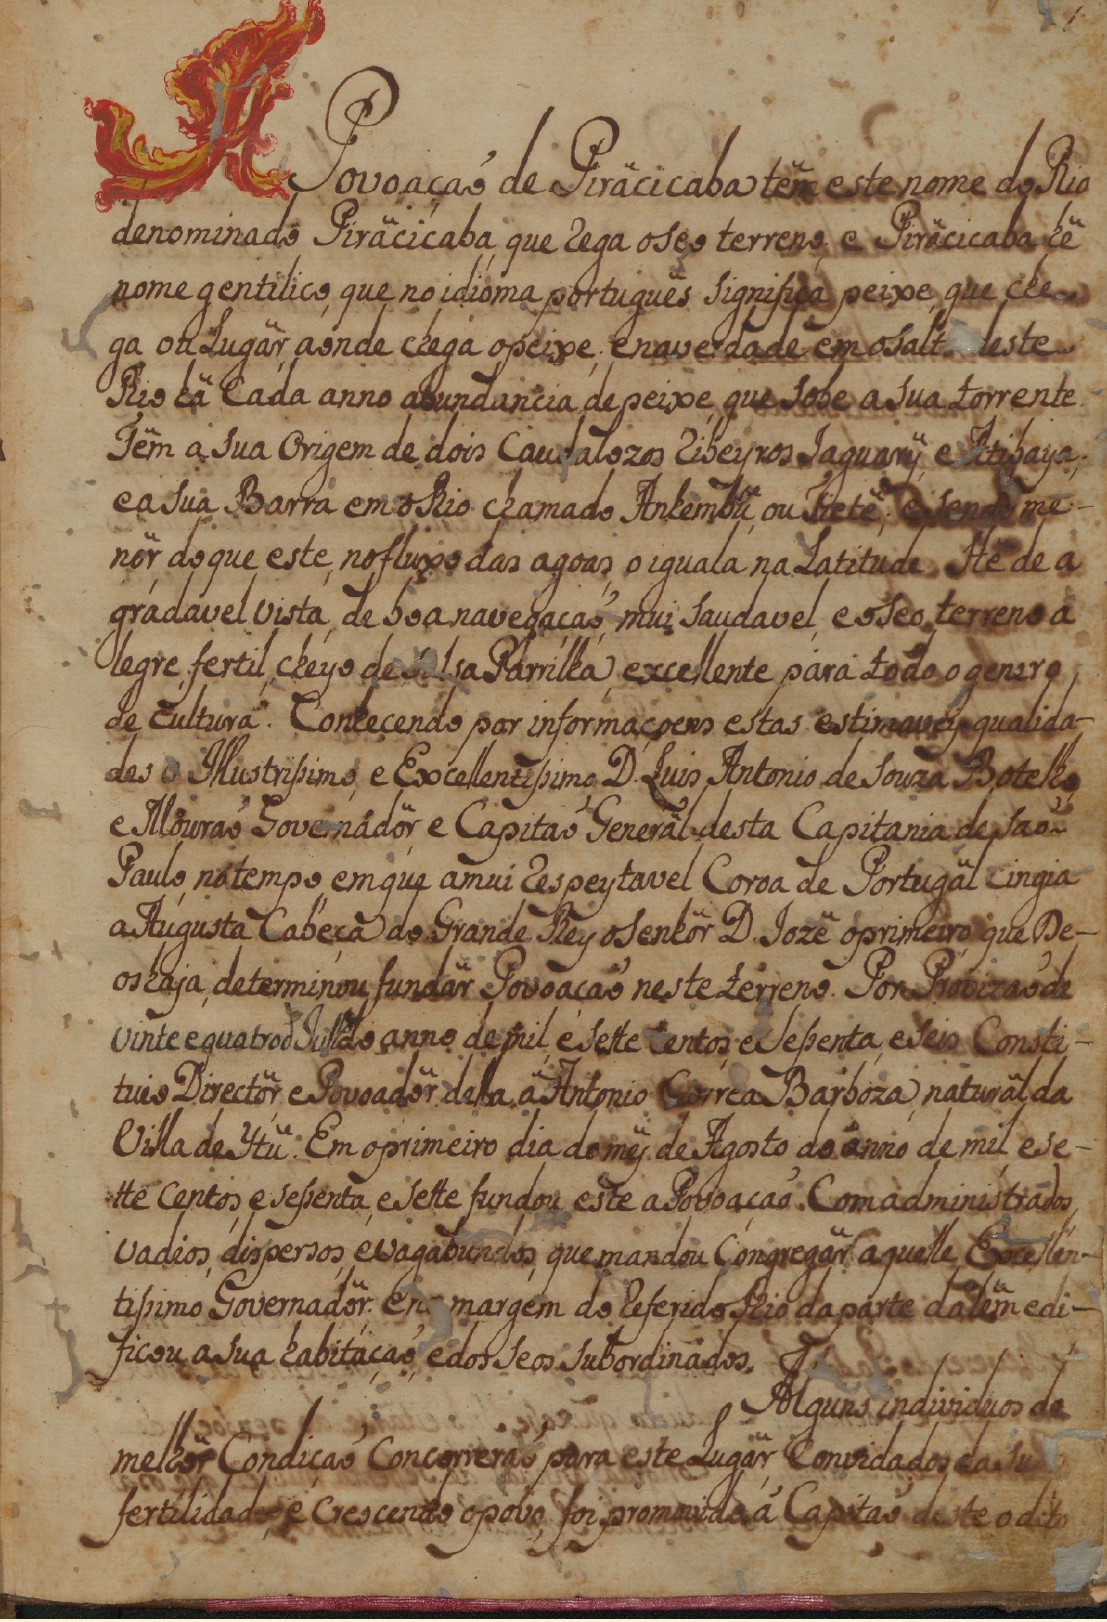 1
A Povoaçaó de Piräcicaba tëm este nome do Rio
denominado Piräcicaba, que rega o seo terreno, e Piräcicaba hë
nome gentilico, que no idioma portuguës significa peixe, que che-
ga ou Lugär, aonde chega o peixe; e na verdade em o salto deste
Rio hä Cada anno abundancia de peixe, que sobe a sua torrente.
Tëm a sua Origem de dois Caudalozos ribeyros Jaguarÿ, e Atibaya,
e a sua Barra em o Rio chamado Anhembü, ou Tietë; e sendo me-
nör do que este, no fluxo das agoas, o iguala na Latitude. He de a
gradavel vista, de boa navegaçaó, mui saudavel, e o seo terreno a
legre, fertil, cheyo de Salsa Parrilha, excellente para todo o genero
de Cultura. Conhecendo por informaçoens estas estimaveis qualida-
des o Illustrissimo, e Excellentissimo D. Luis Antonio de Souza Botelho
e Mouraó Governadör e Capitaó Generäl desta Capitania de Saó
Paulo, no tempo, em que a mui respeytavel Coroa de Portugäl cingia
a Augusta Cabeça do Grande Rey o senhör D. Jozë o primeiro, que De-
os haja, determinou fundär Povoaçaó neste terreno. Por Provizaó de
vinte e quatro d' Julho do anno de mil, e sette centos, e sessenta, e seis Consti-
tuio Directör, e Povoadör della ä Antonio Corrêa Barboza, naturäl da
Villa de Ytü: Em o primeiro dia do mez de Agosto do anno de mil e se-
tte centos, e sessenta, e sette fundou este a Povoaçaó. Com administrados,
vadios, dispersos, e vagabundos, que mandou Congregär aquelle Excellen-
tissimo Governadör. Em a margem do referido Rio da parte dalëm edi-
ficou a sua habitaçaó, e dos seos subordinados.
Alguns individuos de
melhör Condiçaó Concorreraó para este Lugär, Convidados da sua
fertilidade, e Crescendo o povo, foi promovido á Capitaó deste o dito